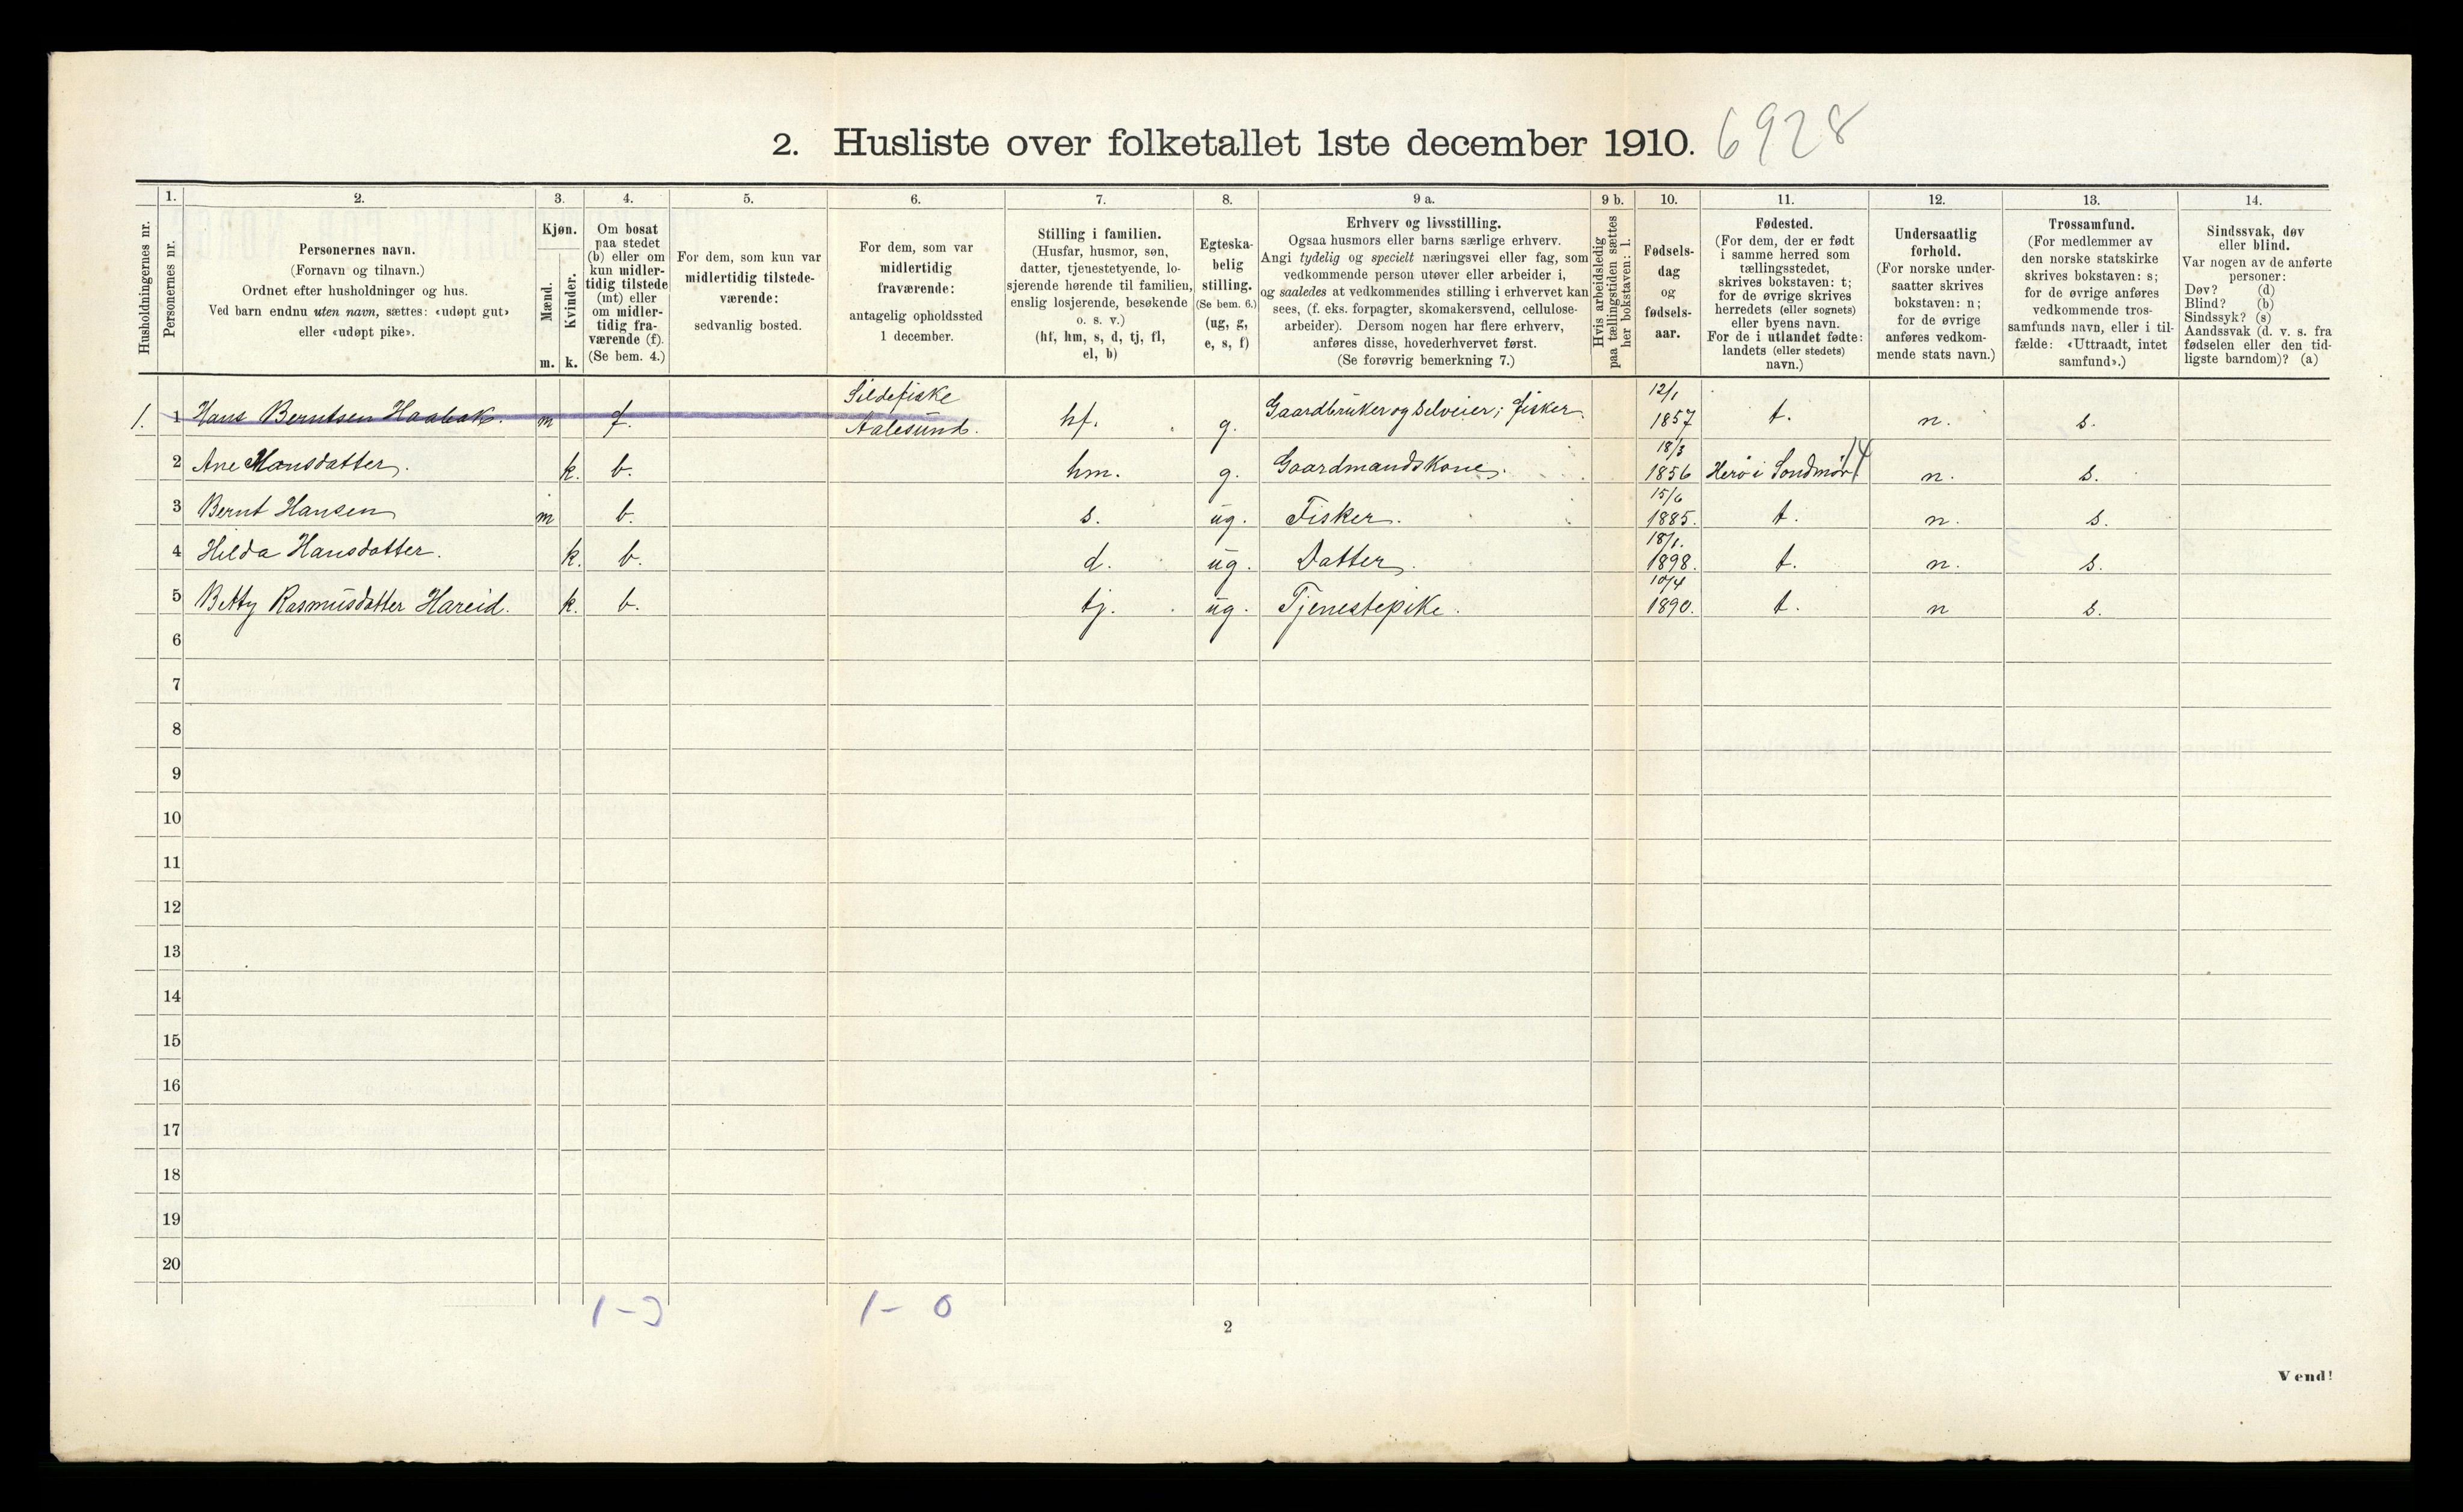 2. Husliste over folketallet 1ste december 1910. 6928
Husholdningernes nr.
1.
Personernes nr.
2.
Personernes navn.
(Fornavn og tilnavn.)
Ordnet efter husholdninger og hus.
Ved barn endnu uten navn, sættes: «udøpt gut»
eller «udøpt pike».
3.
Kjøn.
Mænd.
Kvinder.
m. k.
4.
Om bosat
paa stedet
(b) eller om
kun midler-
tidig tilstede
(mt) eller
om midler-
tidig fra-
værende (f).
(Se bem. 4.)
5.
For dem, som kun var
midlertidig tilstede-
værende:
sedvanlig bosted.
6.
For dem, som var
midlertidig
fraværende:
antagelig opholdssted
1 december.
7.
Stilling i familien.
(Husfar, husmor, søn,
datter, tjenestetyende, lo-
sjerende hørende til familien,
enslig losjerende, besøkende
o. s. v.)
(hf, hm, s, d, tj, fl,
el, b)
8.
Egteska-
belig
stilling.
(Se bem. 6.)
(ug, g,
e, s, f)
9 a.
Erhverv og livsstilling.
Ogsaa husmors eller barns særlige erhverv.
Angi tydelig og specielt næringsvei eller fag, som
vedkommende person utøver eller arbeider i,
og saaledes at vedkommendes stilling i erhvervet kan
sees, (f. eks. forpagter, skomakersvend, cellulose-
arbeider). Dersom nogen har flere erhverv,
anføres disse, hovederhvervet først.
(Se forøvrig bemerkning 7.)
9 b.
Hvis arbeidsledig
paa tællingstiden sættes
her bokstaven: l.
10.
Fødsels-
dag
og
fødsels-
aar.
11.
Fødested.
(For dem, der er født
i samme herred som
tællingsstedet,
skrives bokstaven: t;
for de øvrige skrives
herredets (eller sognets)
eller byens navn.
For de i utlandet fødte:
landets (eller stedets)
navn.)
12.
Undersaatlig
forhold.
(For norske under-
saatter skrives
bokstaven: n;
for de øvrige
anføres vedkom-
mende stats navn.)
13.
Trossamfund.
(For medlemmer av
den norske statskirke
skrives bokstaven: s;
for de øvrige anføres
vedkommende tros-
samfunds navn, eller i til-
fælde: «Uttraadt, intet
samfund».)
14.
Sindssvak, døv
eller blind.
Var nogen av de anførte
personer:
Døv? (d)
Blind? (b)
Sindssyk? (s)
Aandssvak (d. v. s. fra
fødselen eller den tid-
ligste barndom)? (a)
1. 1 Hans Berntsen Haabak. m f. Sildefiske Aalesund. hf. g. Gaardbruker og Selveier; fisker. 12/1 1857 t. n. s.
2 Ane Hansdatter. k. b. hm. g. Gaardmandskone. 18/3 1856 Herö i Sondmör 14 n. s.
3 Bernt Hansen m b. s. ug. Fisker. 15/6 1885. t. n. s.
4 Hilda Hansdatter. k. b. d. ug. Datter. 18/1. 1898. t. n. s.
5 Betty Rasmusdatter Hareid. k. b. tj. ug. Tjenestepike. 10/4 1890. t. n s.
6
7
8
9
10
11
12
13
14
15
16
17
18
19
20
1-3 1-0
2
Vend!